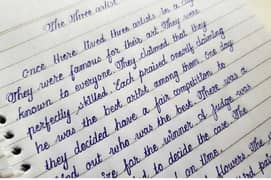 The Three artist
Once there lived three artists in a city
They were famous for their art. They were
known to everyone. They claimed that they
perfectly skilled. Each praised claiming
he was the best artist among them. One day
they decided have a fair competition to
find out who was the best. There was a
for the winner. A judge was
to decide the case. The
on time.
flowers. The